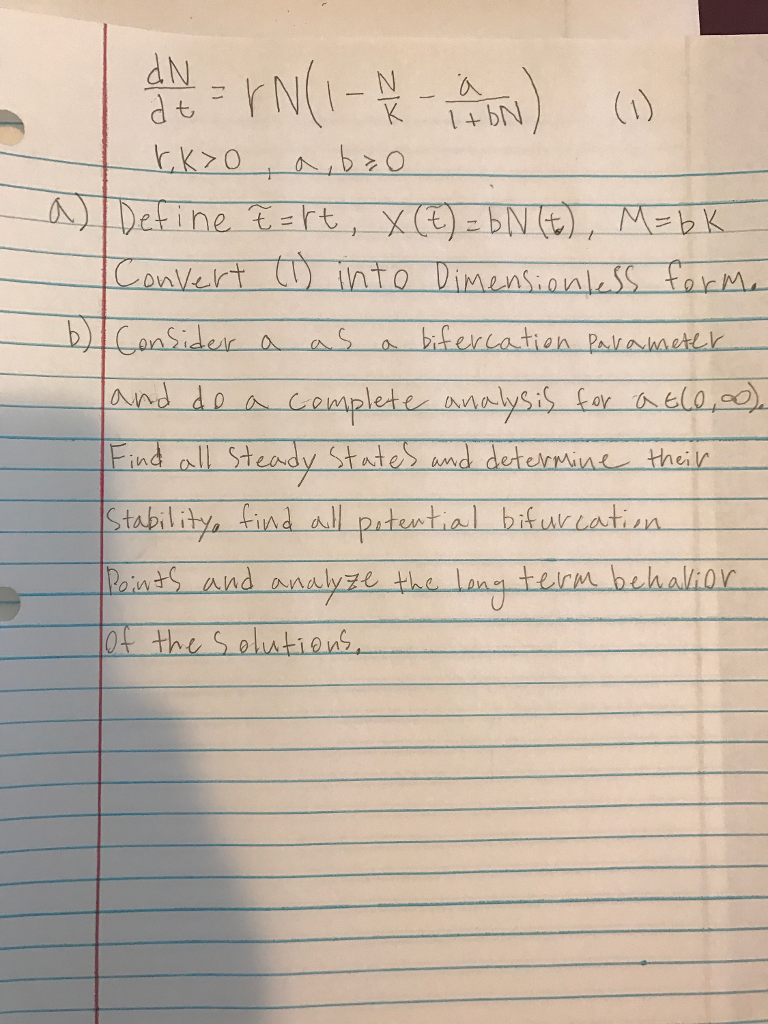 dN/dt = rN(1 - N/K - a/(1+bN)) (1)
r,K>0 , a,b≥0
a) Define t̃=rt, X(t̃)=bN(t), M=bK
Convert (1) into Dimensionless form.
b) Consider a as a bifercation Parameter
and do a complete analysis for a∈(0,∞).
Find all Steady States and determine their
Stability. find all potential bifurcation
Points and analyze the long term behavior
Of the Solutions.